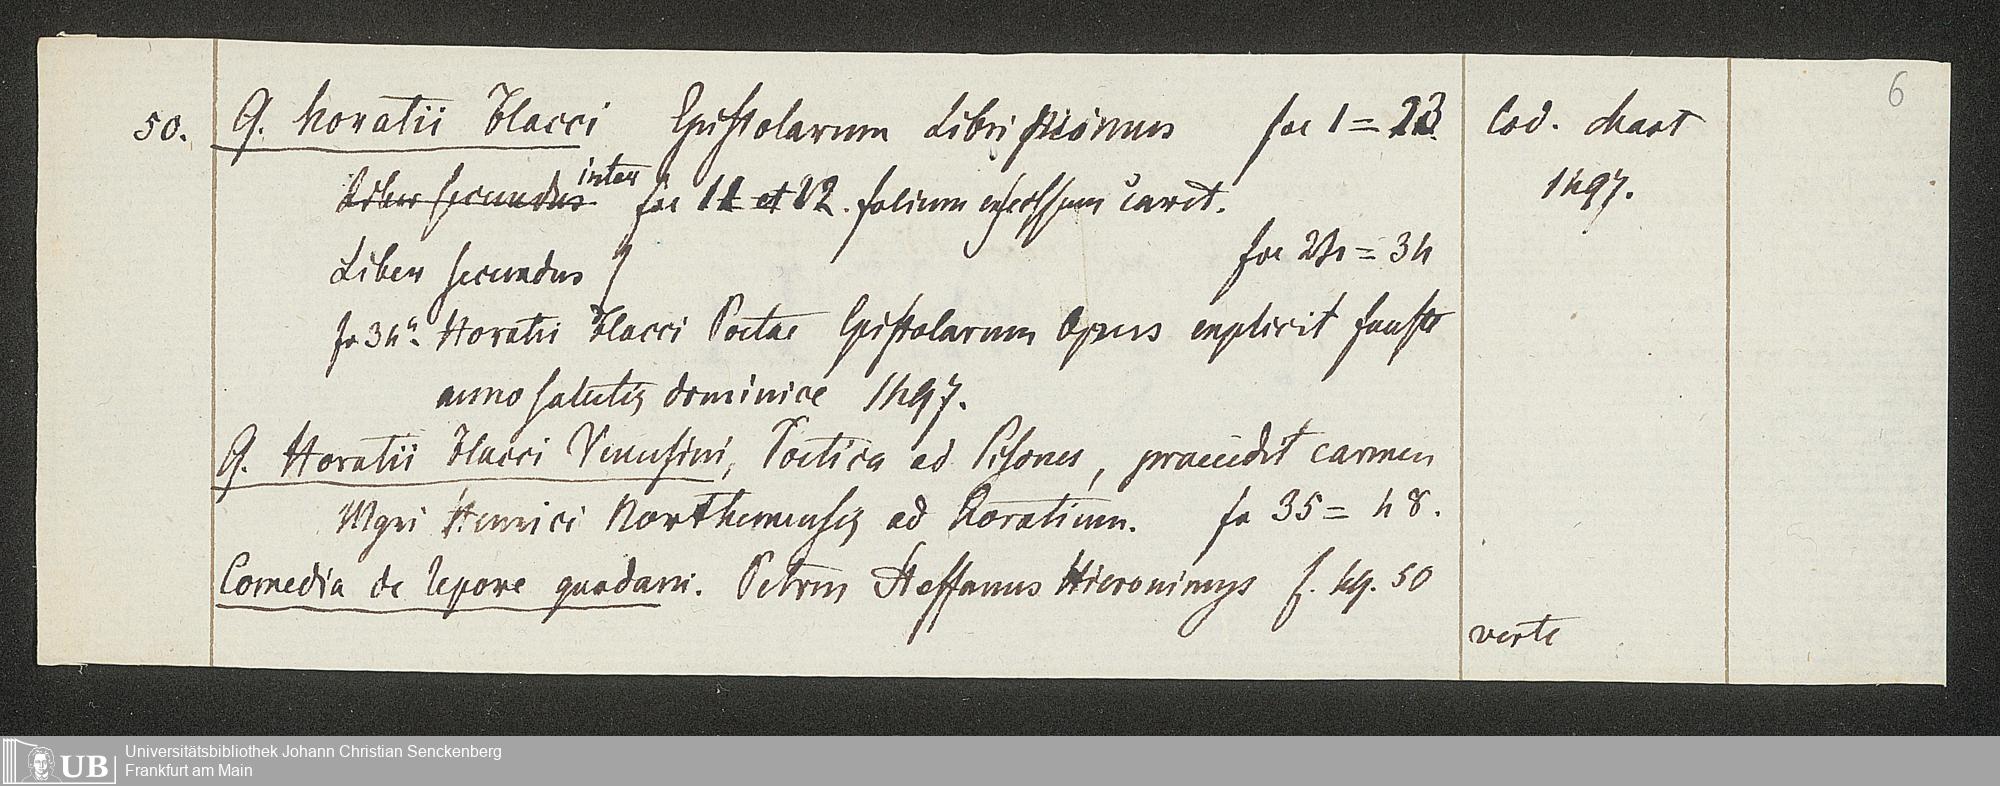 6
50. Q. Horatii Flacci Epistolarum Libri primus foe 1 = 23. Cod. chart
Liber secundus inter foe 11 et 12. folium caret. 1497.
Liber secundus foe 24 = 34
fo 34a Horatii Flacci Poetae Epistolarum Opus explicit fauste
anno salutis dominice 1497.
Q. Horatii Flacci Venusini, Poetica ad Pisones, praecedit carmen
Mgri Henrici Northemensis ad Horatium. fo 35 = 48.
Comedia de lepore quadam. Petrus Steffanus Hieronimus f. 49. 50
verte
UB Universitätsbibliothek Johann Christian Senckenberg
Frankfurt am Main